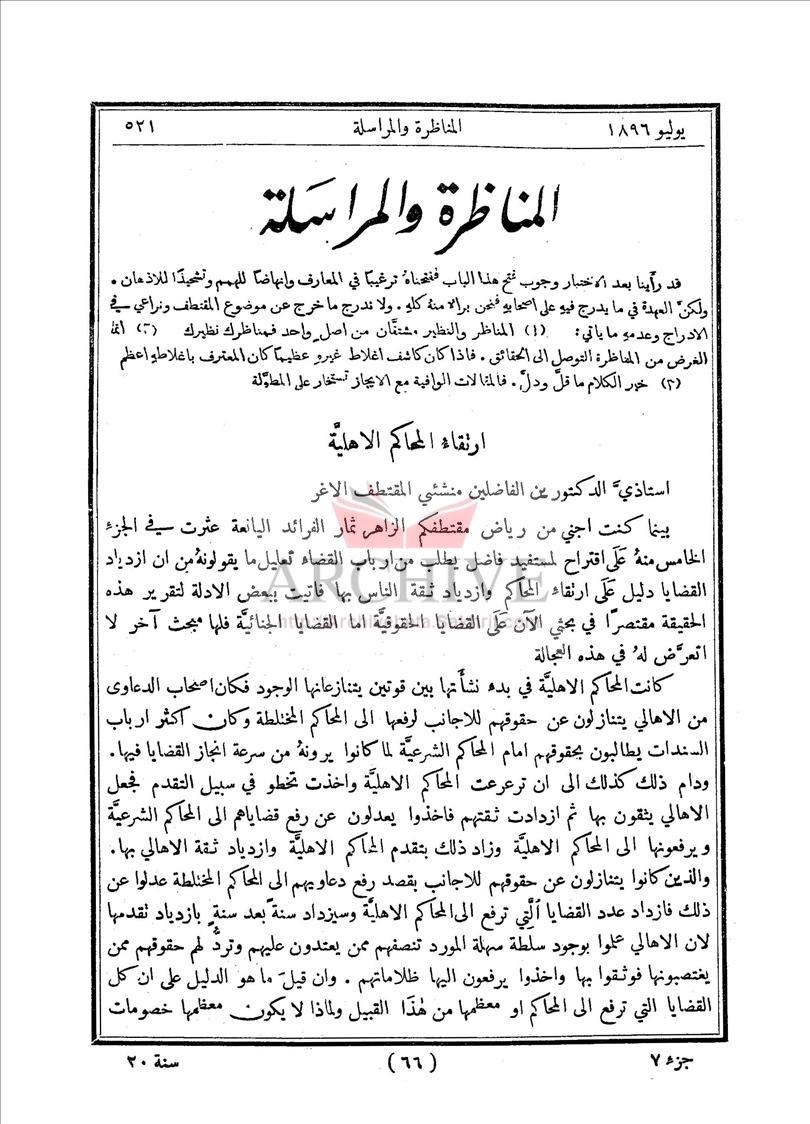 يوليو ١٨٩٦ المناظرة والمراسلة ٥٢١
المناظرة والمراسلة
قد رأينا بعد الاختبار وجوب فتح هذا الباب ففتحناهُ ترغيبًا في المعارف وانهاضًا للهمم وتشحيذًا للاذهان .
ولكنَّ العهدة في ما يدرج فيهِ على اصحابهِ فنحن برالا منهُ كلهِ . ولا ندرج ما خرج عن موضوع المقتطف ونراعي في
الادراج وعدمهِ ما ياتي: (١) المناظر والنظير مشتقَّان من اصلٍ واحد فمناظرك نظيرك (٢) انما
الغرض من المناظرة التوصل الى الحقائق . فاذا كان كاشف اغلاط غيرهِ عظيمًا كان المعترف باغلاطهِ اعظم
(٣) خير الكلام ما قلَّ ودلَّ . فالمقالات الوافية مع الايجاز تستخار على المطوَّلة
ارتقاءُ المحاكم الاهليَّة
استاذيَّ الدكتورين الفاضلين منشئي المقتطف الاغر
بينما كنت اجني من رياض مقتطفكم الزاهر ثمار الفرائد اليانعة عثرت في الجزء
الخامس منهُ عَلَى اقتراح لمستفيد فاضل يطلب من ارباب القضاء تعليل ما يقولونهُ من ان ازدياد
القضايا دليل عَلَى ارتقاء المحاكم وازدياد ثقة الناس بها فاتيت ببعض الادلة لتقرير هذه
الحقيقة مقتصرًا في بحثي الآن عَلَى القضايا الحقوقيَّة اما القضايا الجنائيَّة فلها مبحث آخر لا
اتعرَّض لهُ في هذه العجالة
كانت المحاكم الاهليَّة في بدء نشأَتها بين قوتين يتنازعانها الوجود فكان اصحاب الدعاوى
من الاهالي يتنازلون عن حقوقهم للاجانب لرفعها الى المحاكم المختلطة وكان اكثر ارباب
السندات يطالبون بحقوقهم امام المحاكم الشرعيَّة لما كانوا يرونهُ من سرعة انجاز القضايا فيها.
ودام ذلك كذلك الى ان ترعرعت المحاكم الاهليَّة واخذت تخطو في سبيل التقدم فجعل
الاهالي يثقون بها ثم ازدادت ثقتهم فاخذوا يعدلون عن رفع قضاياهم الى المحاكم الشرعيَّة
ويرفعونها الى المحاكم الاهليَّة وزاد ذلك بتقدم المحاكم الاهليَّة وازدياد ثقة الاهالي بها.
والذين كانوا يتنازلون عن حقوقهم للاجانب بقصد رفع دعاويهم الى المحاكم المختلطة عدلوا عن
ذلك فازداد عدد القضايا الَّتي ترفع الى المحاكم الاهليَّة وسيزداد سنةً بعد سنةٍ بازدياد تقدمها
لان الاهالي علموا بوجود سلطة سهلة المورد تنصفهم ممن يعتدون عليهم وتردُّ لهم حقوقهم ممن
يغتصبونها فوثقوا بها واخذوا يرفعون اليها ظلاماتهم . وان قيلَ ما هو الدليل على ان كل
القضايا التي ترفع الى المحاكم او معظمها من هٰذَا القبيل ولماذا لا يكون معظمها خصومات
جزء ٧ (٦٦) سنة ٢٠
ARCHIVE